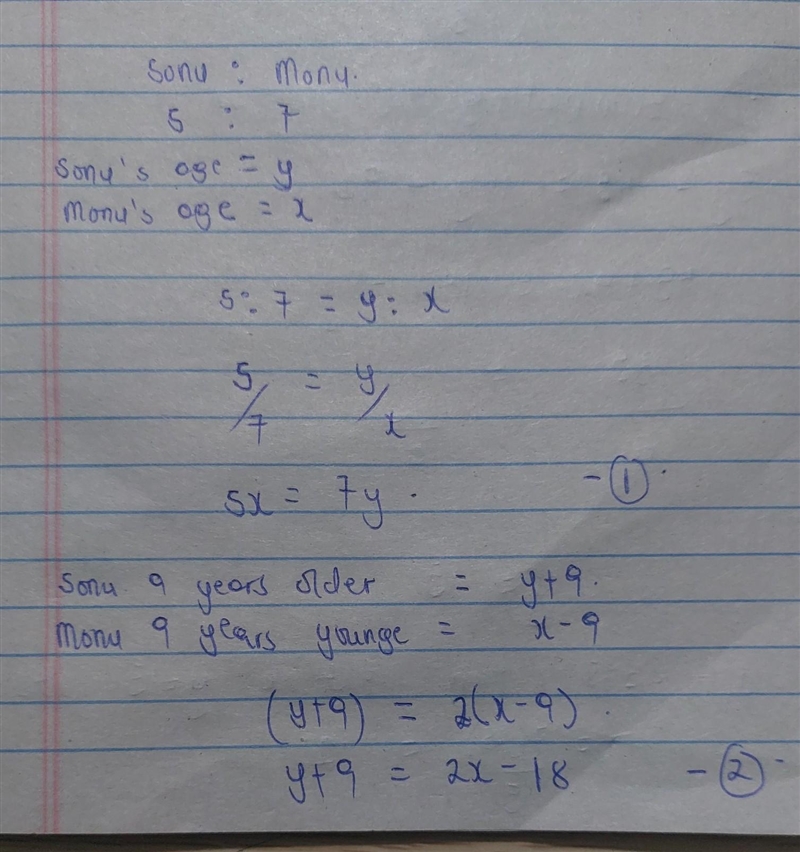 Sonu : Monu.
5 : 7
Sonu's age = y
Monu's age = x
5:7 = y:x
5/7 = y/x
5x = 7y. - ①.
Sonu 9 years older = y+9.
Monu 9 years younge = x-9
(y+9) = 2(x-9).
y+9 = 2x-18 - ②-